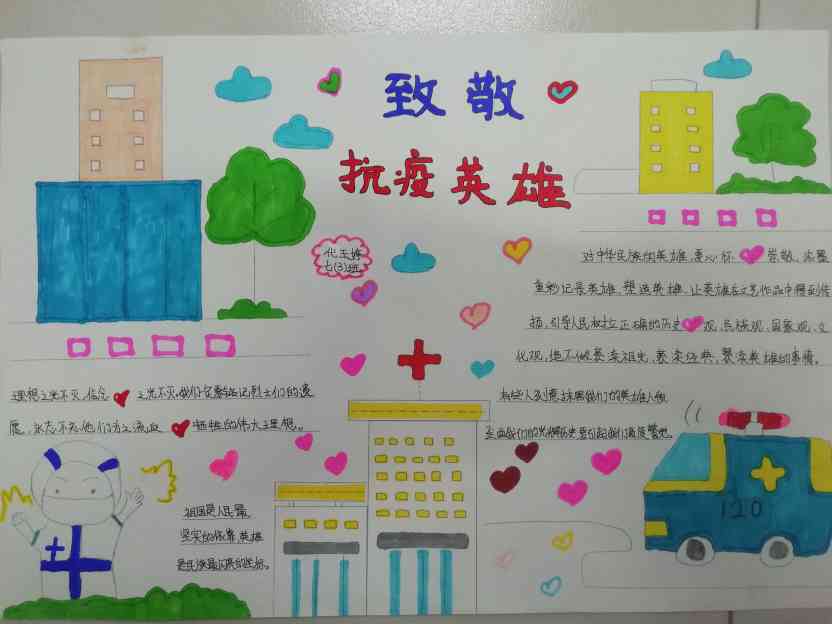 致敬
抗疫英雄
七(3)班
对中华民族的英雄,要心怀崇敬,浓墨
重彩记录英雄、塑造英雄,让英雄在文艺作品中得到传
扬,引导人民树立正确的历史观、民族观、国家观、文
化观,绝不做亵渎祖先、亵渎经典、亵渎英雄的事情。
理想之光不灭,信念之光不灭。我们一定要铭记烈士们的遗
愿,永志不忘他们为之流血牺牲的伟大理想。
有些人刻意抹黑我们的英雄人物
歪曲我们的光辉历史要引起我们高度警觉。
祖国是人民最
坚实的依靠,英雄
是民族最闪亮的坐标。
120